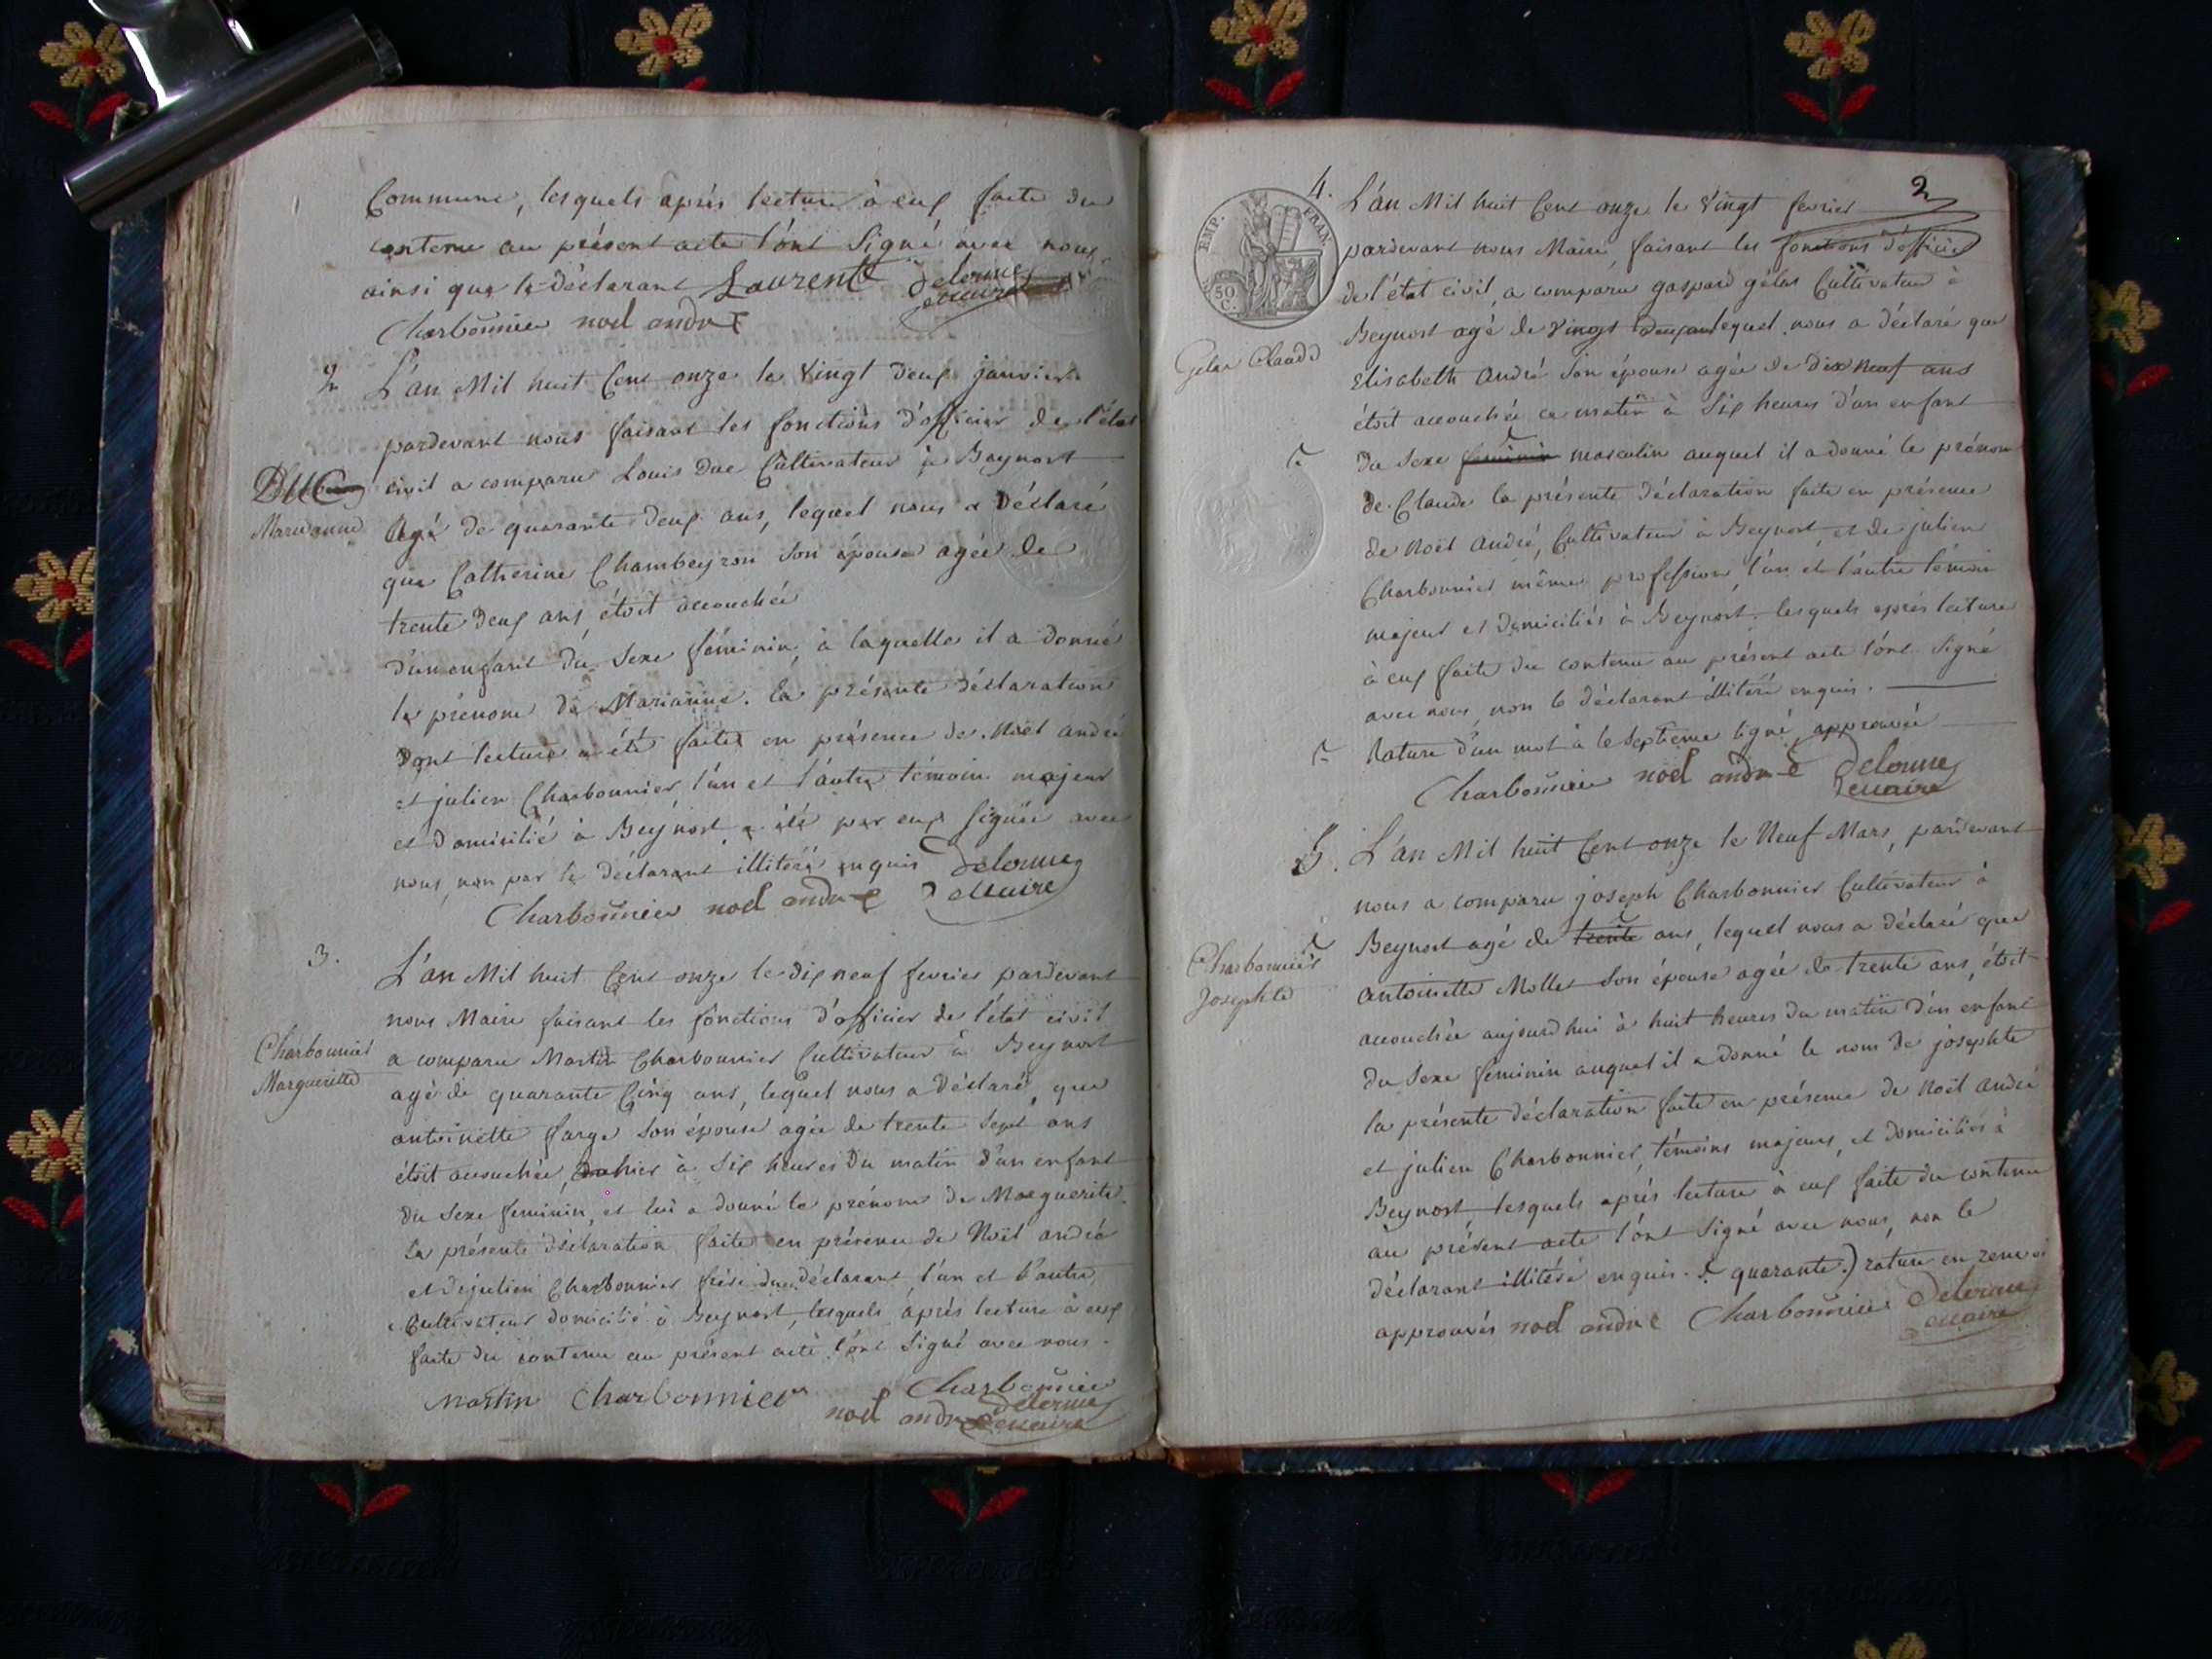 Commune, lesquels après lecture à eux faite du
contenu au présent acte l'ont signé avec nous
ainsi que le déclarant Laurent Delorme
maire
Charbonnier noel andre
2 L'an Mil huit Cent onze le Vingt deux janvier
pardevant nous faisant les fonctions d'officier de l'état
DUC
Marianne
civil a comparu Louis Duc Cultivateur à Beynost
Agé de quarante deux ans, lequel nous a Déclaré
que Catherine Chambeyron son épouse agée de
trente deux ans, étoit accouchée
d'un enfant du sexe féminin, à laquelle il a donné
le prénom de Marianne. la présente déclaration
dont lecture a été faite en présence de Noël andré
et julien Charbonnier, l'un et l'autre témoin majeur
et domicilié à Beynost, a été par eux signée avec
nous, non par le déclarant illitéré enquis Delorme
Charbonnier noel andre maire
3. L'an Mil huit Cent onze le dix neuf fevrier pardevant
nous Maire faisant les fonctions d'officier de l'état civil
Charbonnier
Marguerite
a comparu Martin Charbonnier Cultivateur à Beynost
agé de quarante Cinq ans, lequel nous a Déclaré que
antoinette farge son épouse agée de trente sept ans
étoit accouchée, hier à six heures du matin d'un enfant
du sexe feminin, et lui a donné le prénom de Marguerite.
la présente déclaration faite en présence de Noël andré
et de julien Charbonnier frère du déclarant, l'un et l'autre
Cultivateur domicilié à Beynost, lesquels après lecture à eux
faite du contenu au présent acte l'ont signé avec nous.
Martin Charbonnier Charbonnier
noel andre Delorme
maire
2
4. L'an Mil huit Cent onze le Vingt fevrier
EMP. FRAN.
50 C.
pardevant nous Maire, faisant les fonctions d'officier
de l'état civil, a comparu gaspard gelas Cultivateur à
Beynost agé de Vingt deux ans lequel nous a déclaré que
Gelas Claude
Elisabeth André son épouse agée de dix neuf ans
étoit accouchée ce matin à six heures d'un enfant
du sexe feminin masculin auquel il a donné le prénom
de Claude la présente déclaration faite en présence
de Noël André, Cultivateur à Beynost, et de julien
Charbonnier même profession, l'un et l'autre témoin
majeur et domiciliés à Beynost, lesquels après lecture
à eux faite du contenu au présent acte l'ont signé
avec nous, non le déclarant illitéré enquis.
Rature d'un mot à le septieme ligne, approuvée
Charbonnier noel andre Delorme
maire
5. L'an Mil huit Cent onze le Neuf Mars, pardevant
nous a comparu joseph Charbonnier Cultivateur à
Charbonnier
Josephte
Beynost agé de trente ans, lequel nous a déclaré que
antoinette Mollet son épouse agée de trente ans, étoit
accouchée aujourdhui à huit heures du matin d'un enfant
du sexe feminin auquel il a donné le nom de josephte
la présente déclaration faite en présence de Noël André
et julien Charbonnier, témoins majeurs, et domiciliés à
Beynost lesquels après lecture à eux faite du contenu
au présent acte l'ont signé avec nous, non le
déclarant illitéré enquis. quarante.) rature en renvoi
approuvés noel andre Charbonnier Delorme
maire